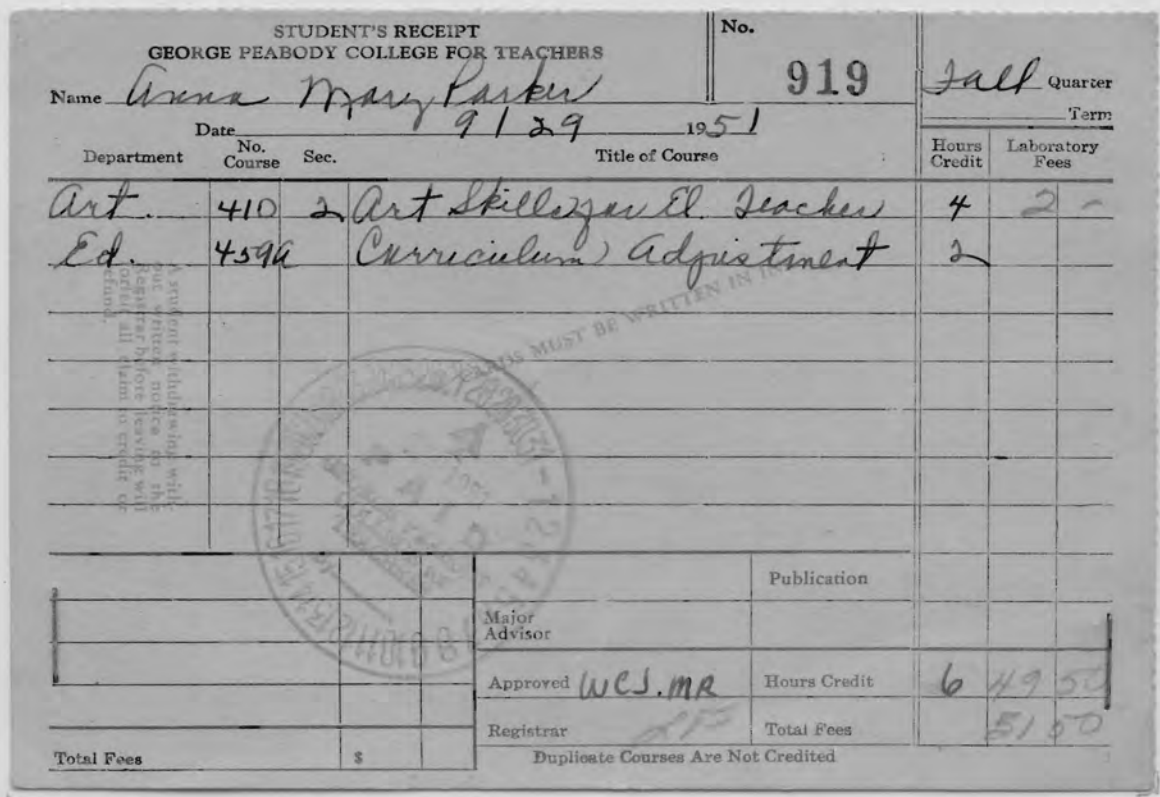 STUDENT'S RECEIPT
GEORGE PEABODY COLLEGE FOR TEACHERS
No.
919
Fall Quarter
Term
Name Anna Mary Parker
Date 9/29 1951
Department No. Course Sec. Title of Course Hours Credit Laboratory Fees
Art. 410 2 Art Skills for El. Teacher 4 2 -
Ed. 459a Curriculum Adjustment 2
MUST BE WRITTEN IN
A student withdrawing with-
out written notice to the
Registrar before leaving will
forfeit all claim to credit or
refund.
PAID
Publication
Major Advisor
Approved WCJ.MR Hours Credit 6 49 50
Registrar Total Fees 51 50
Total Fees $
Duplicate Courses Are Not Credited